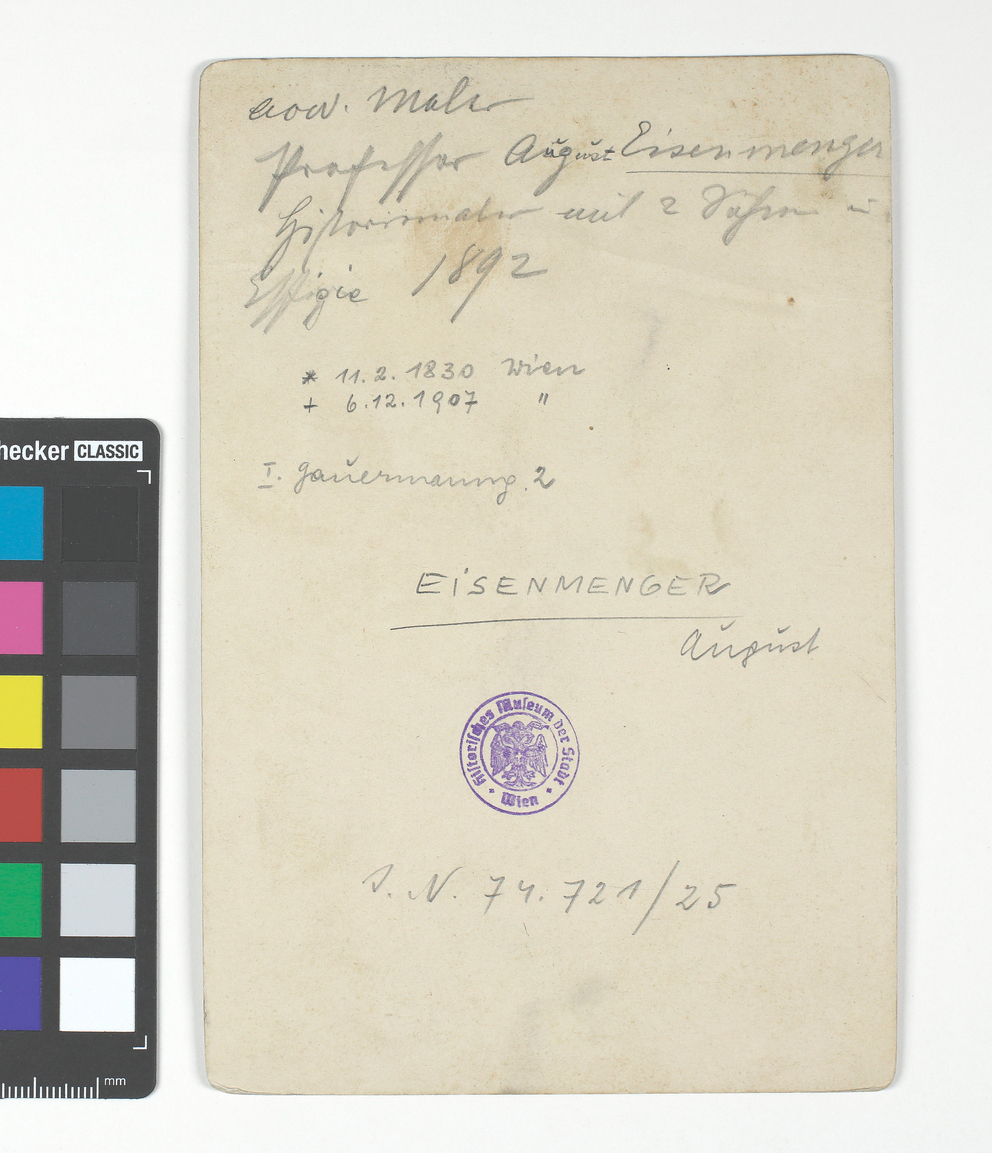 Maler
Professor August Eisenmenger
Historienmaler mit 2 Söhnen
Effigie 1892
* 11.2.1830 Wien
+ 6.12.1907 "
I. Gauermanng. 2
EISENMENGER
August
Historisches Museum der Stadt
• Wien •
I. N. 74.721/25
hecker CLASSIC
mm